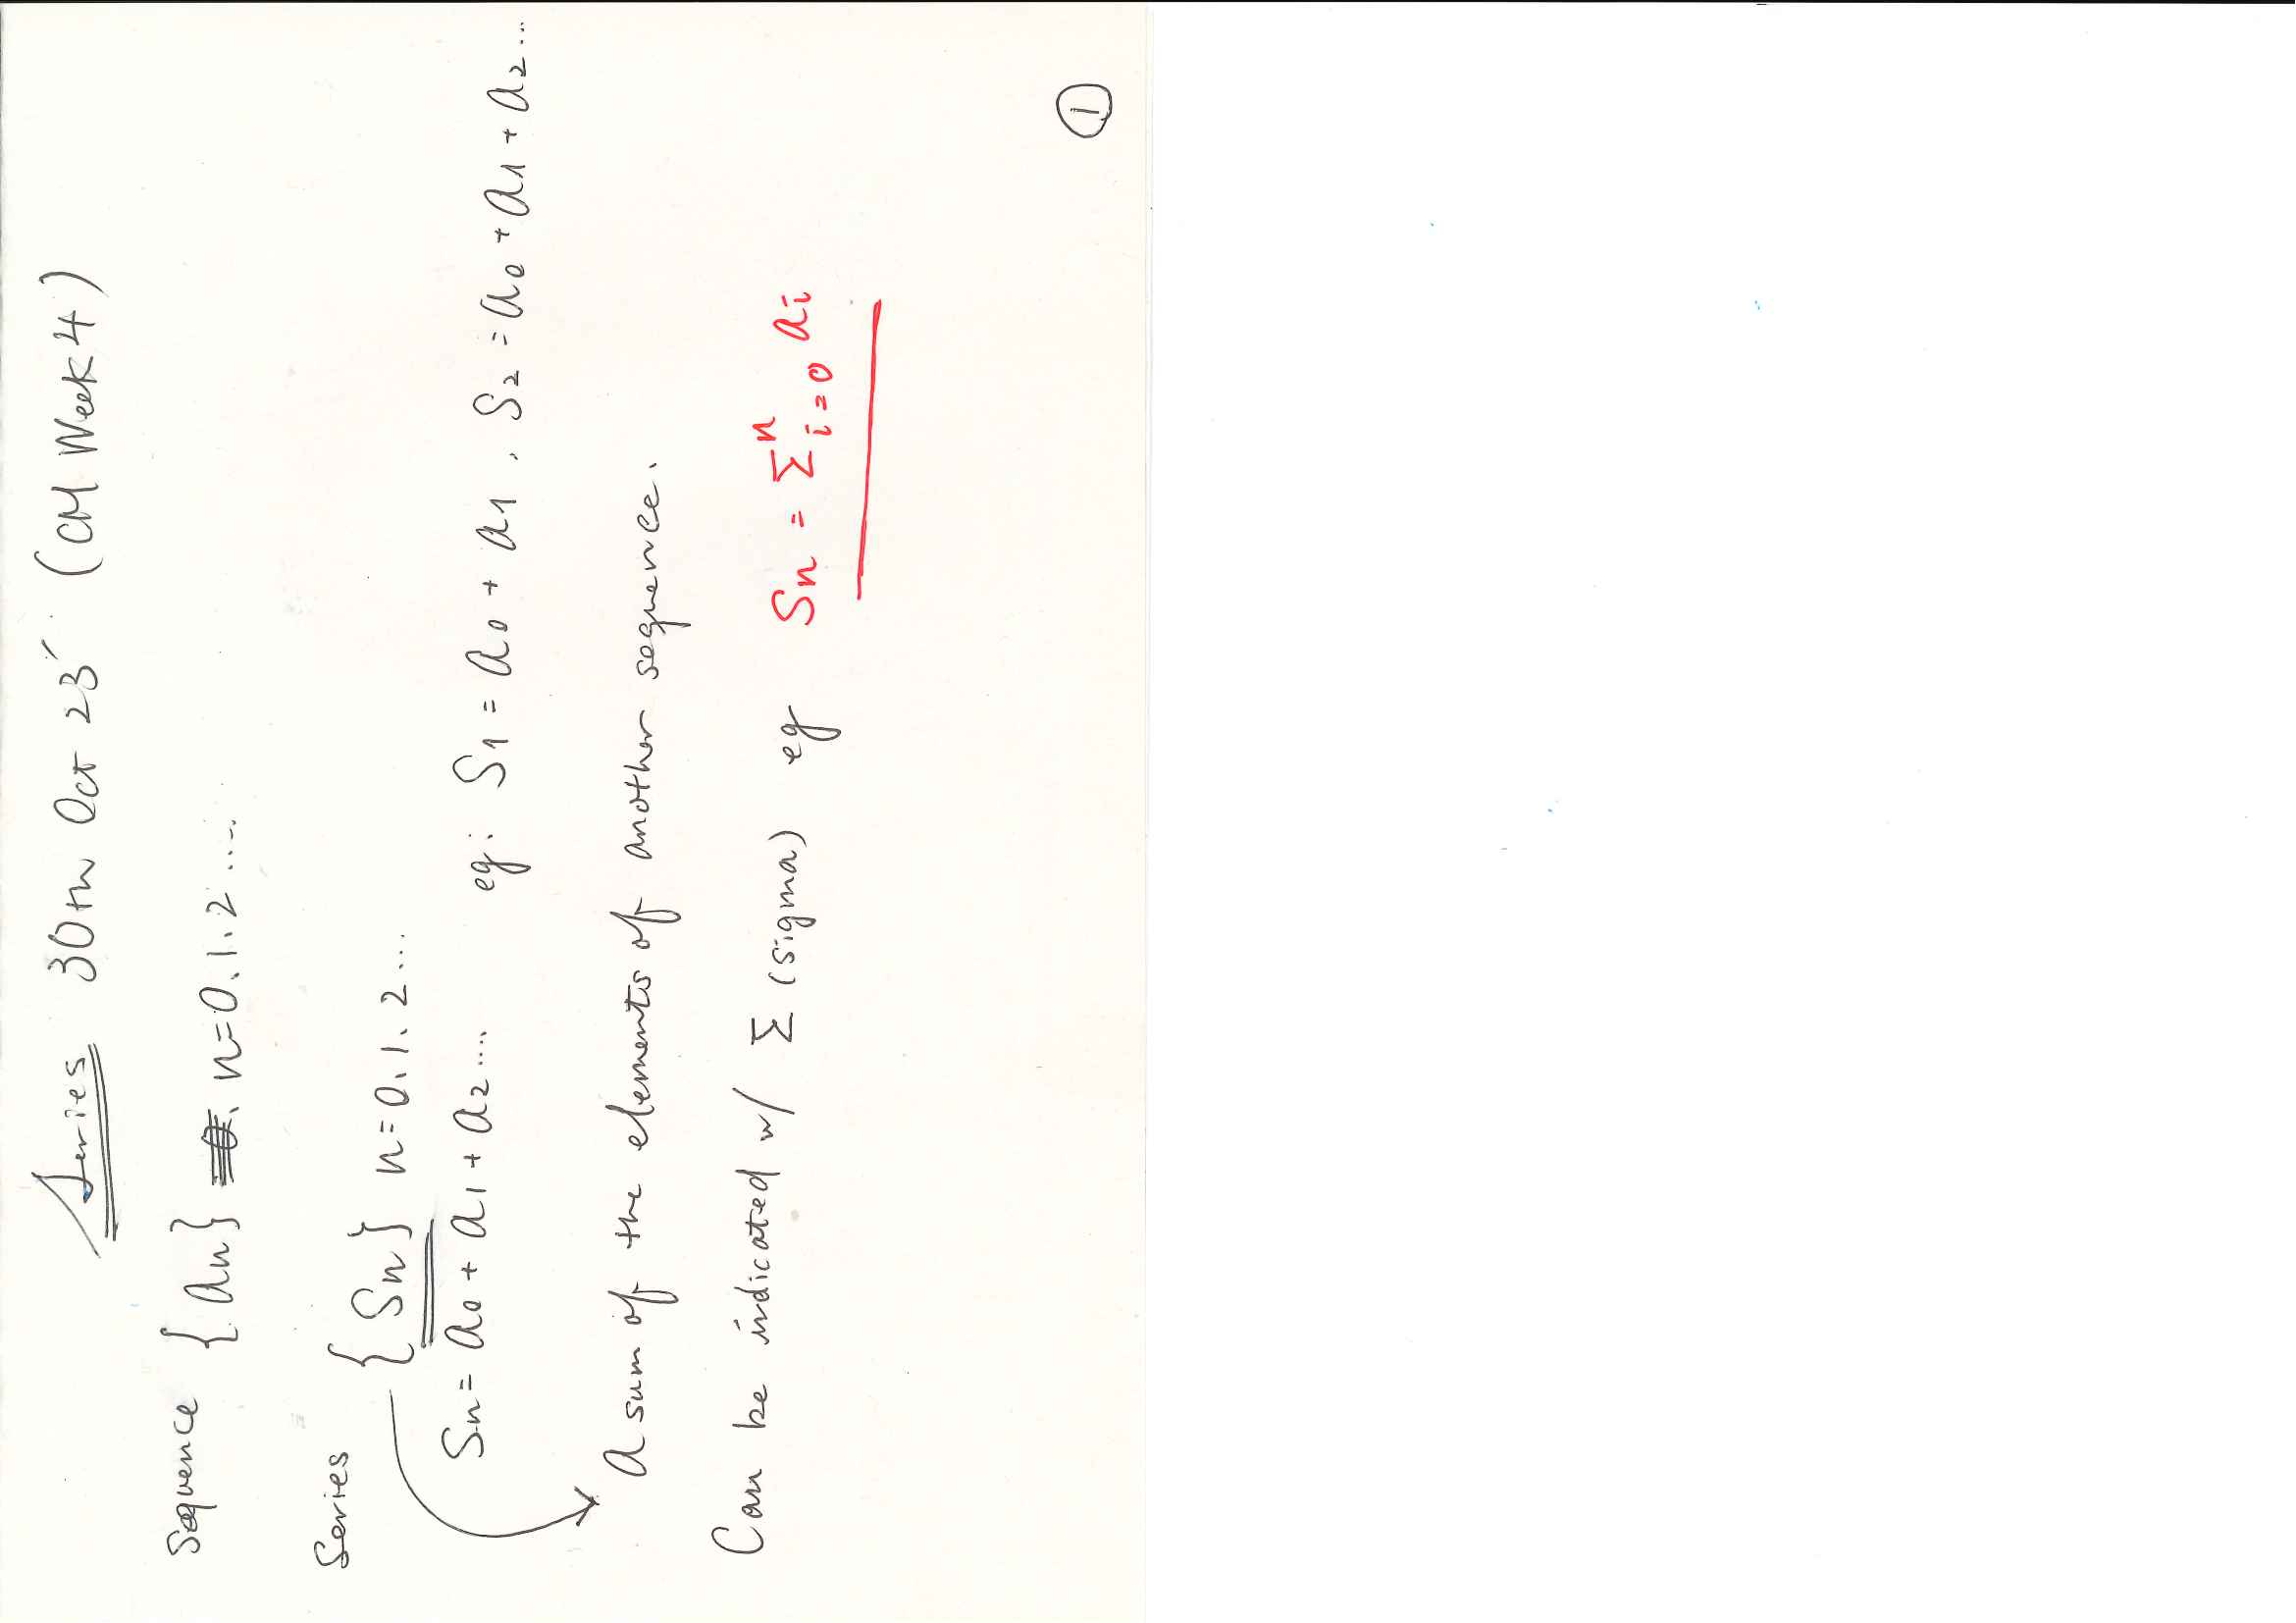 Series 30th Oct 23' (CM Week 4)
Sequence {an} n=0.1.2.....
Series {Sn} n=0.1.2...
Sn = a0 + a1 + a2.... eg: S1 = a0 + a1, S2 = a0 + a1 + a2...
a sum of the elements of another sequence.
Can be indicated w/ Σ (sigma) eg Sn = Σ^n_{i=0} ai
①